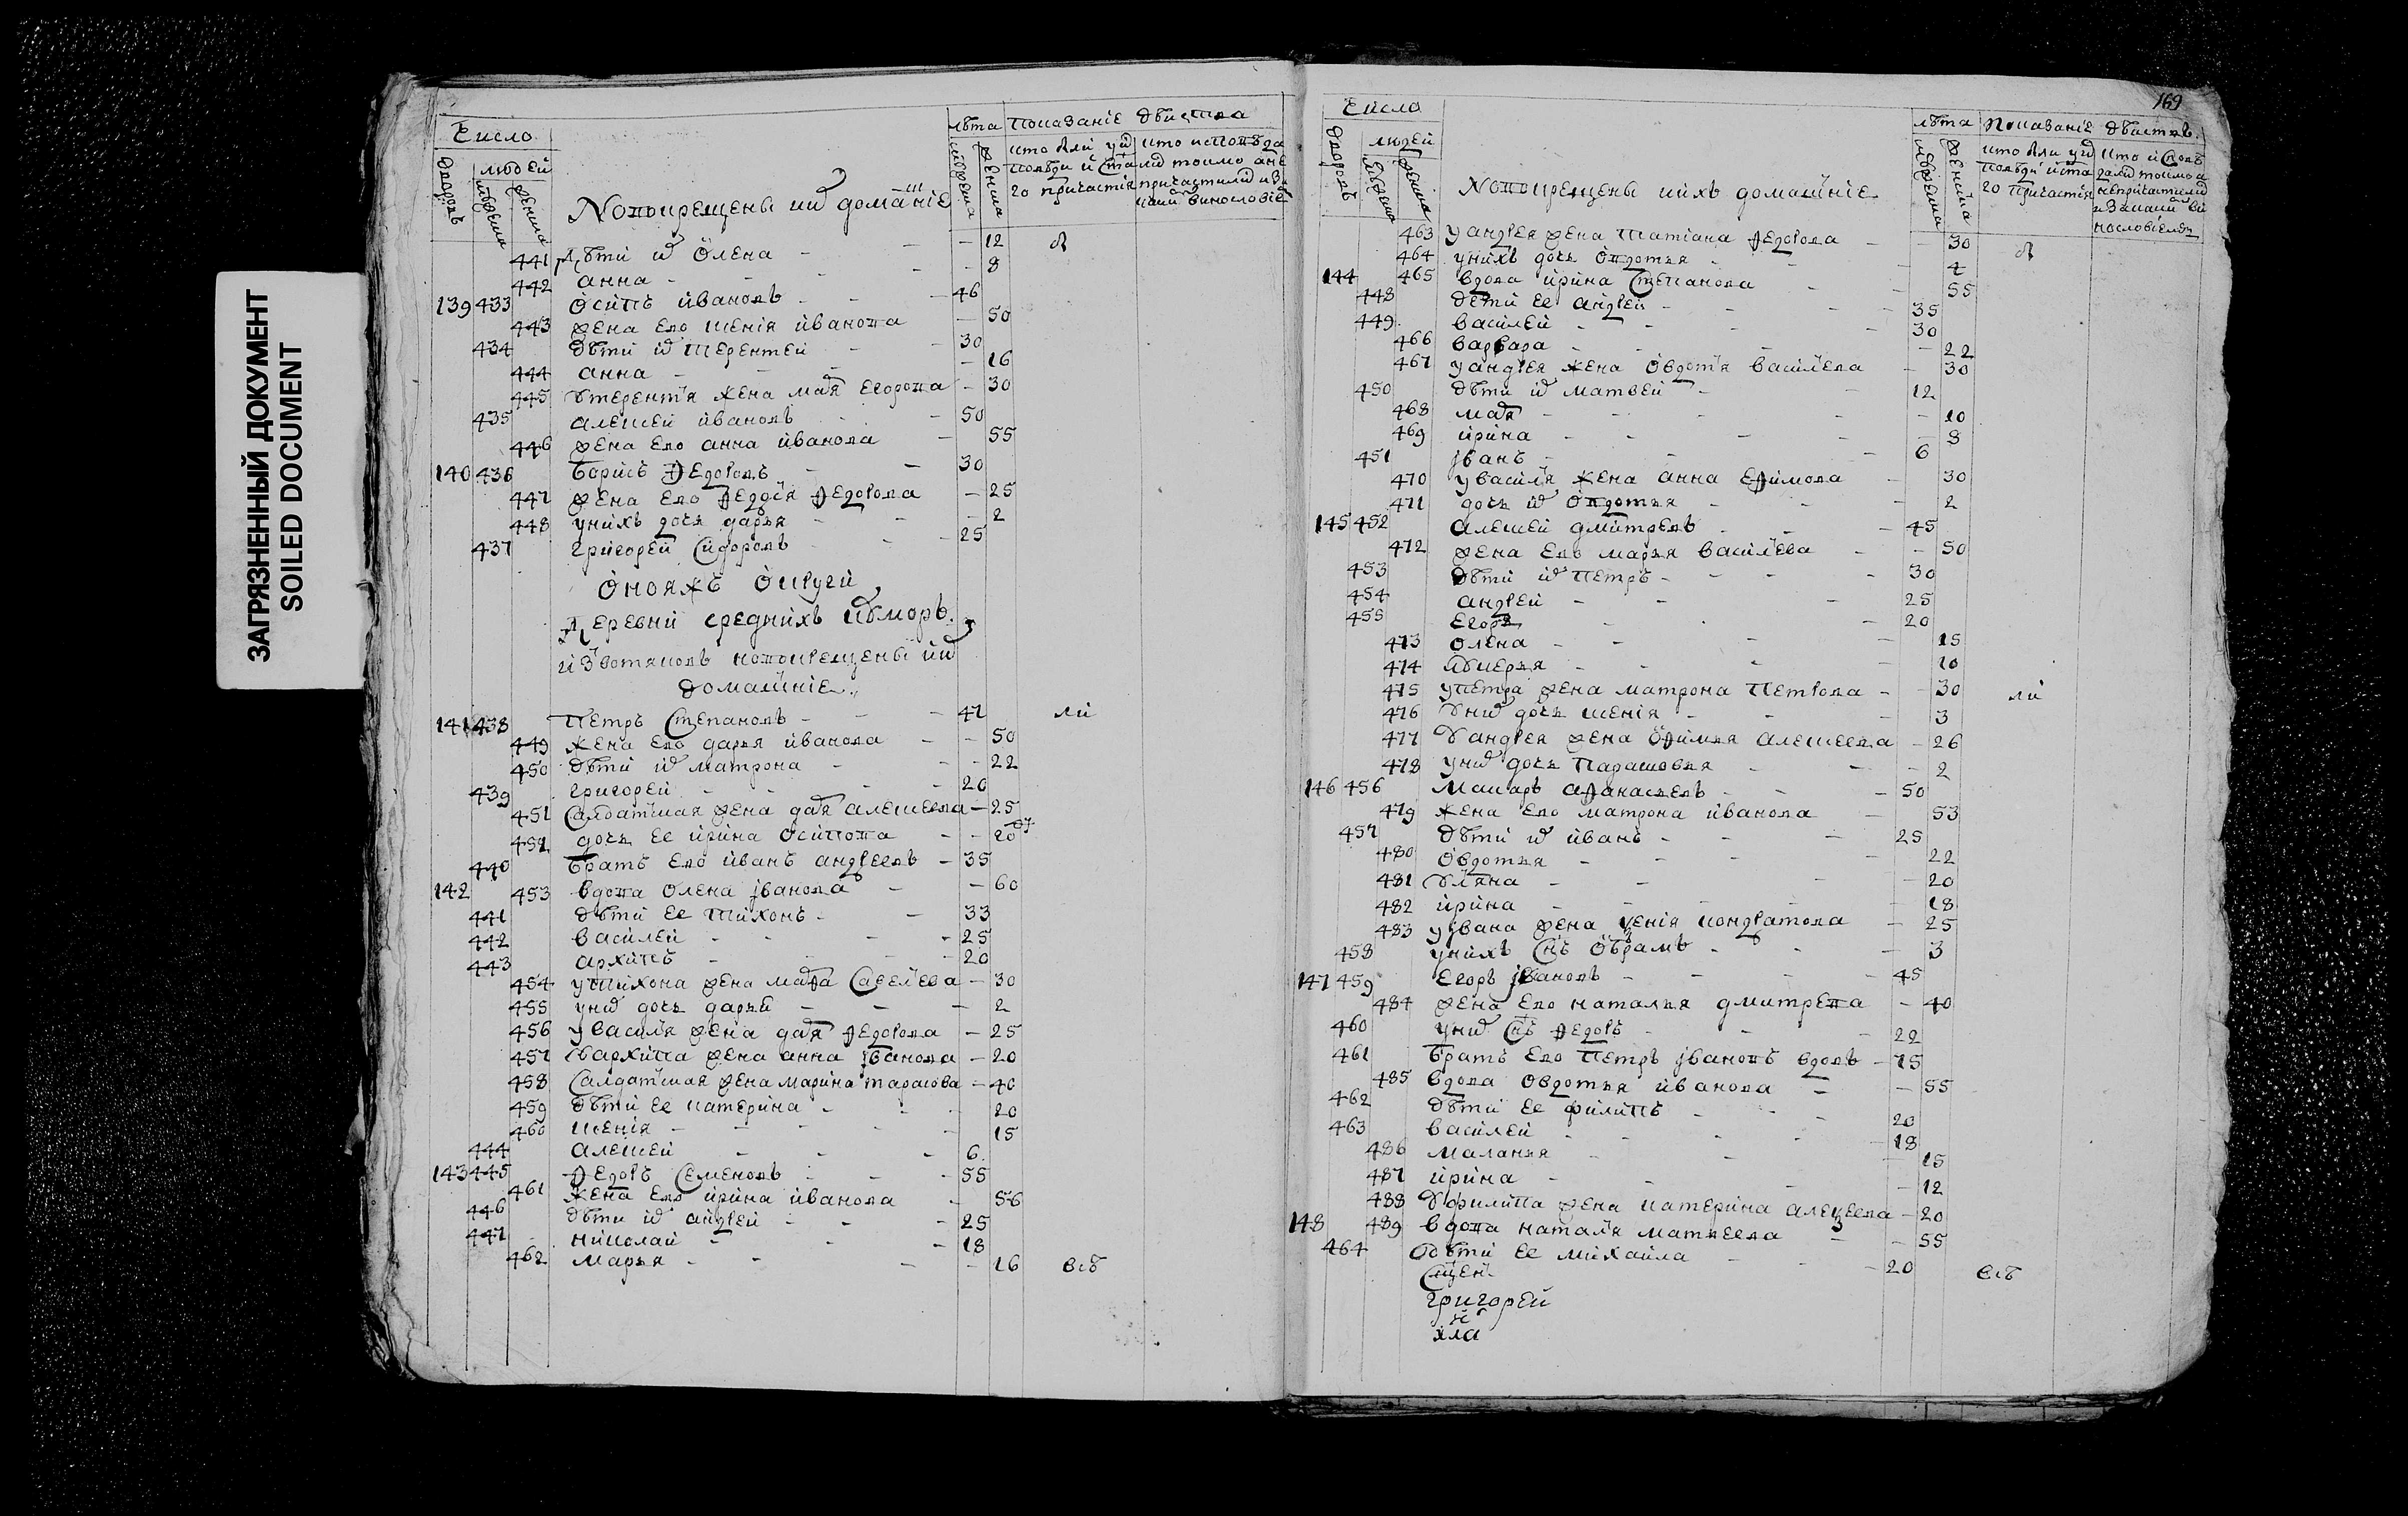 ЗАГРЯЗНЕННЫЙ ДОКУМЕНТ
SOILED DOCUMENT
Число
лѣта показание двиства
дворовъ людей мужеска женска
Новокрещены их домание
441 дѣти их Олена - 12
442 анна - 8
139 433 Осипъ ивановъ - 46
443 жена ево ксения иванова - 50
434 дѣти их терентеи - 30
444 анна - 16
445 у терентя жена маря егорова - 30
435 алексеи ивановъ - 50
446 жена ево анна иванова - 55
140 436 борисъ Федоровъ - 30
447 жена ево Федося Федорова - 25
448 у нихъ дочь дарья - 2
437 григореи Сидоровъ - 25
Деревни среднихъ
из вотяковъ новокрещены их
домашние
141 438 Петръ Степановъ - 47
449 жена ево дарья иванова - 50
450 дѣти их матрона - 22
439 григореи - 20
451 Салдатская жена даря алексеева - 25
452 дочь ее ирина осипова - 20
440 братъ ево иванъ андреевъ - 35
142 453 вдова олена иванова - 60
441 дѣти ее тихонъ - 33
442 василеи - 25
443 архипъ - 20
454 у тихона жена марфа Савелева - 30
455 у них дочь дарьи - 2
456 у василя жена даря Федорова - 25
457 у архипа жена анна иванова - 20
458 Салдатская жена марина тарасова - 40
459 дѣти ее катерина - 20
460 ксения - 15
444 алексеи - 6
143 445 Федоръ Семеновъ - 55
461 жена ево ирина иванова - 56
446 дѣти их андреи - 25
447 николаи - 18
462 марья - 16
169
Число
лѣта Показание двиствъ
дворовъ людей мужеска женска
Новокрещены ихъ домашние
463 у андрея жена татиана Федорова - 30
464 у нихъ дочь овдотья - 4
144 465 вдова ирина Степанова - 55
448 дети ее андреи - 35
449 василеи - 30
466 варвара - 22
467 у андрея жена овдотя василева - 30
450 дѣти их матвеи - 12
468 маря - 10
469 ирина - 8
451 иванъ - 6
470 у василя жена анна ефимова - 30
471 дочь их овдотья - 2
145 452 алексеи дмитревъ - 45
472 жена ево марья василева - 50
453 дѣти их петръ - 30
454 андреи - 25
455 егоръ - 20
473 олена - 15
474 - 10
475 у петра жена матрона петрова - 30
476 у них дочь ксения - 3
477 у андрея жена офимья алексеева - 26
478 у них дочь парасковья - 2
146 456 Макаръ афанасьевъ - 50
479 жена ево матрона иванова - 53
457 дѣти их иванъ - 25
480 овдотья - 22
481 уляна - 20
482 ирина - 18
483 у ивана жена ксения кондратова - 25
458 у нихъ снъ обрамъ - 3
147 459 егоръ ивановъ - 45
484 жена ево наталья дмитрева - 40
460 у них снъ Федоръ - 22
461 братъ ево петръ ивановъ вдовъ - 75
485 вдова овдотья иванова - 55
462 дѣти ее филипъ - 20
463 василеи - 18
486 маланья - 15
487 ирина - 12
488 у филипа жена катерина алексеева - 20
148 489 вдова наталя матвеева - 55
464 дѣти ее михаила - 20
Сщен
григореи